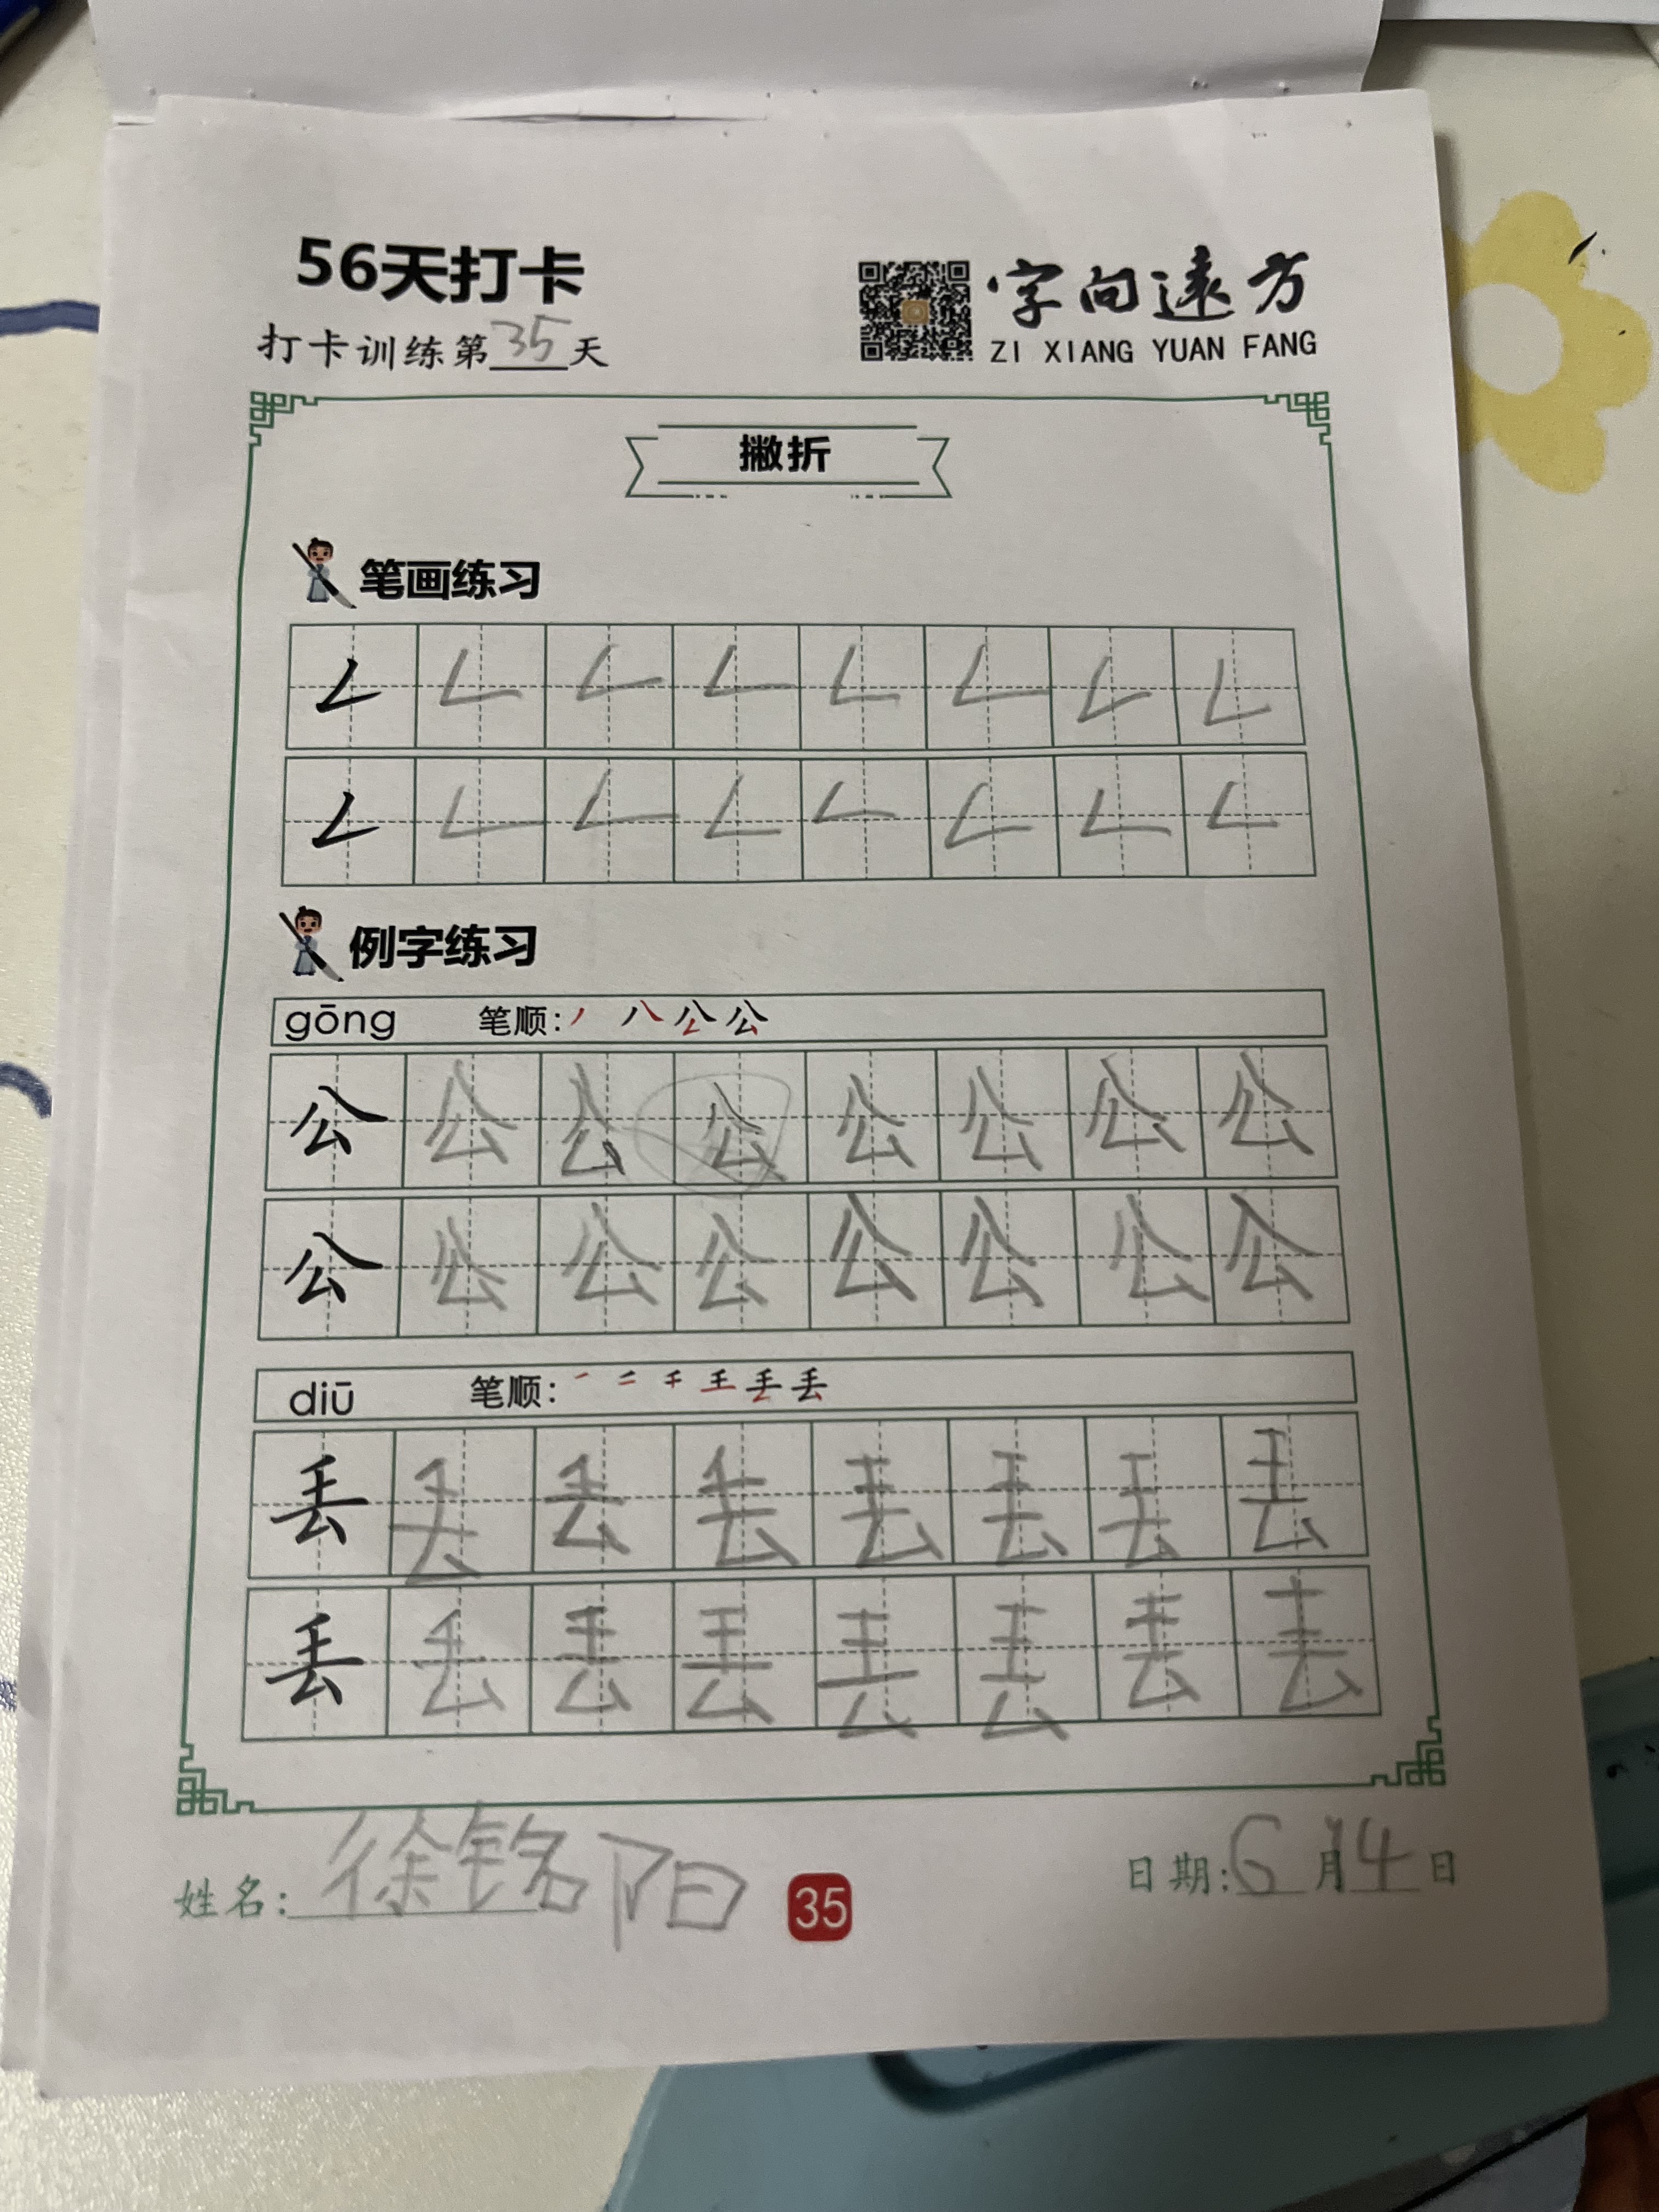 56天打卡
字向远方
打卡训练第35天
ZI XIANG YUAN FANG
撇折
笔画练习
例字练习
gōng 笔顺: 丿 八 公 公
公 公 公 公 公 公 公 公
公 公 公 公 公 公 公 公
diū 笔顺: 丢 丢
丢 丢 丢 丢 丢 丢 丢 丢
丢 丢 丢 丢 丢 丢 丢 丢
姓名: 徐铭阳
35
日期: 6月14日